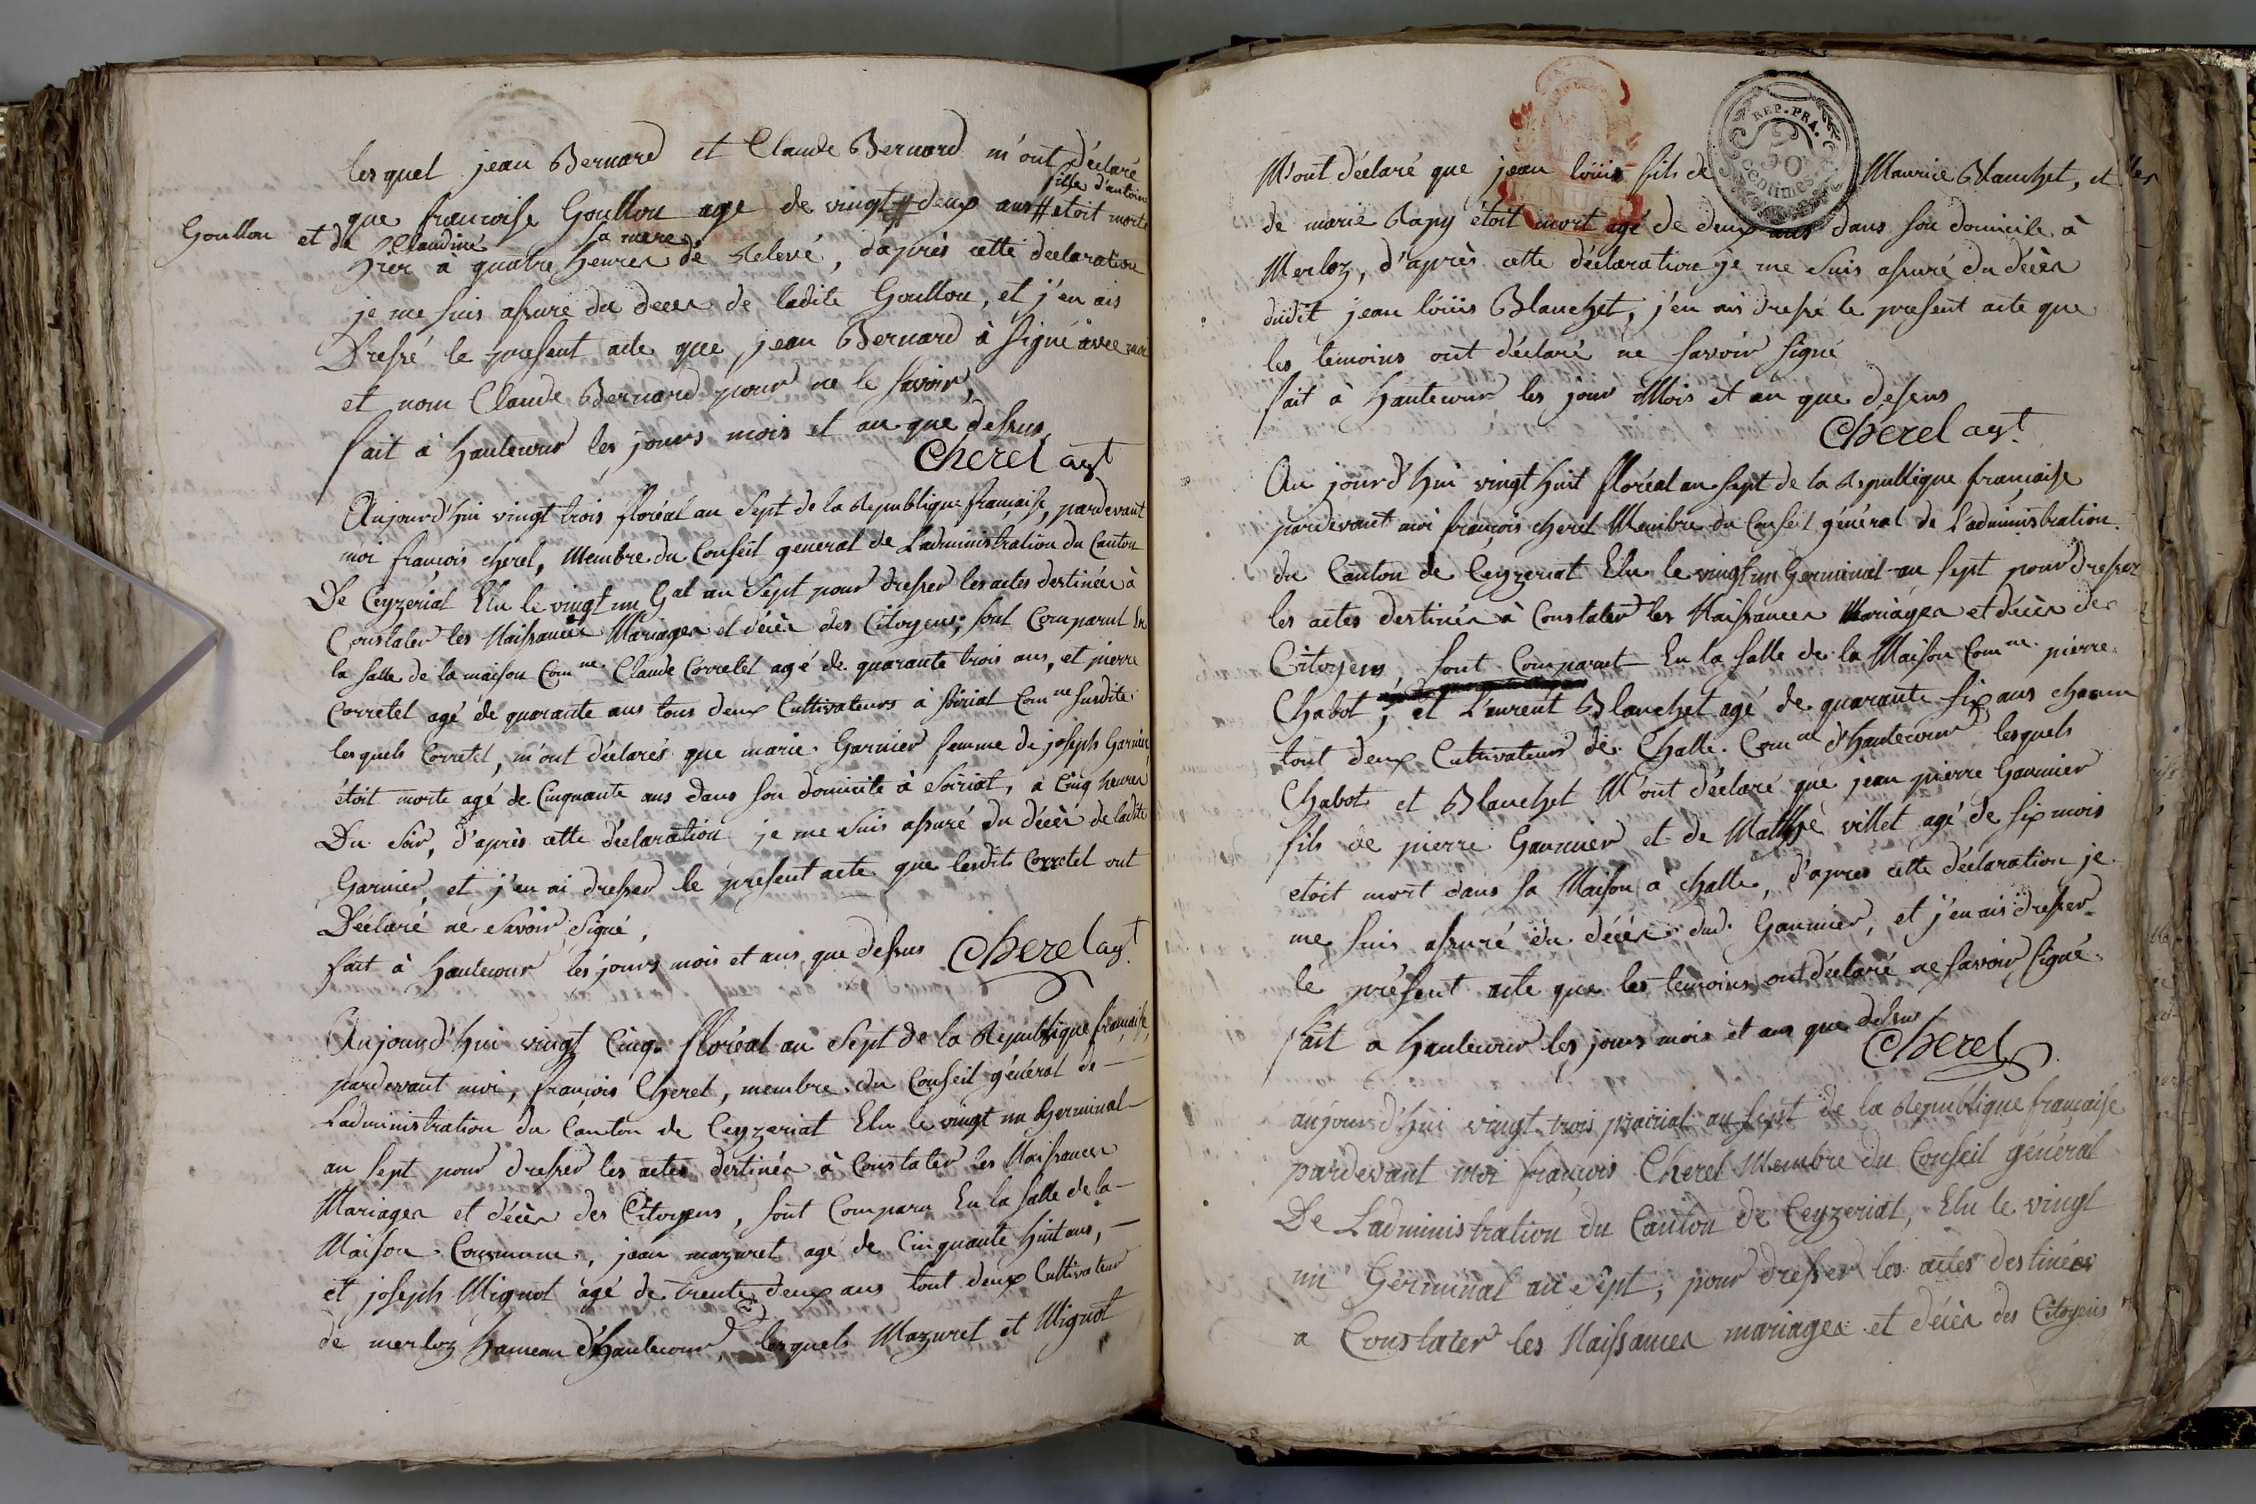 lesquel jean Bernard et Claude Bernard m'ont déclaré
que francoise Goullon age de vingt deux ans # etoit morte
fille d'antoine
Goullon et de Claudine sa mere
hier à quatre heures de relevé, d'après cette déclaration
je me suis assuré du deces de ladite Goullon, et j'en ais
Dressé le present acte que jean Bernard à signé avec moi
et nom Claude Bernard pour ne le savoir,
fait à hautecour les jours mois et an que dessus
Cherel agt
Aujourd'hui vingt trois floréal an sept de la Republique francaise, pardevant
moi françois cherel, Membre du Conseil general de L'administration du Canton
De Ceyzeriat Elu le vingt un Gal an sept pour dresser les actes destinés à
Constater les Naissances Mariages et décès des Citoyens, sont Comparut En
la salle de la maison Comne Claude Corretel agé de quarante trois ans, et pierre
Corretel agé de quarante ans tous deux Cultivateurs à soiriat Comne susdite
lesquels Corretel, m'ont déclarés que marie Garnier femme de joseph Garnier
étoit morte agé de Cinquante ans dans son domicile à Soiriat, à Cinq heures
Du soir, d'après cette déclaration je me suis assuré du décès de ladite
Garnier, et j'en ai dresser le present acte que lesdits Corretel ont
Déclaré ne savoir signé,
fait à hautecour les jours mois et ans que dessus Cherel agt
Aujourd'hui vingt Cinq floréal an sept de la Republique française,
pardevant moi, françois Cherel, membre du Conseil général de
L'administration du Canton de Ceyzeriat Elu le vingt un Germinal
an sept pour dresser les actes destinés à Constater les Naissances
Mariages et décès des Citoyens, sont Comparu En la salle de la
Maison Commune, jean mazuret agé de Cinquante huit ans,
et joseph Mignot agé de trente deux ans tout deux Cultivateur
de merloz hameau d'hautecour, lesquels Mazuret et Mignot
REP. FRA.
50
centimes
M'ont déclaré que jean loüis fils de Maurice Blanchet, et
de marie Rapy étoit mort agé de deux ans dans son domicile à
Merloz, d'après cette déclaration je me suis assuré du décès
dudit jean loüis Blanchet, j'en ais dressé le present acte que
les temoins ont déclaré ne savoir signé
fait à hautecour les jour Mois et an que dessus
Cherel agt
Au jourd'hui vingt huit floréal an sept de la Republique française
pardevant moi françois cherel Membre du Conseil général de L'administration
du Canton de Ceyzeriat Elu le vingt un Germinal an sept pour dresser
les actes destinés à Constater les Naissances Mariages et décès des
Citoyens, sont Comparut En la salle de la Maison Comne pierre
Chabot, et Laurent Blanchet agé de quarante six ans chacun
tout deux Cultivateurs de Challe Comne d'hautecour lesquels
Chabot et Blanchet M'ont déclaré que jean pierre Gaunier
fils de pierre Gaunier et de Mathé villet agé de six mois
etoit mort dans sa Maison à challe, d'apres cette déclaration je
me suis assuré du décès dud. Gaunier, et j'en ais dresser
le présent acte que les temoins ont déclaré ne savoir signé.
fait a hautecour les jours mois et ans que dessus
Cherel
aujourd'hui vingt trois prairial an sept de la Republique française
pardevant moi françois Cherel Membre du Conseil général
De L'administration du Canton de Ceyzeriat, Elu le vingt
un Germinal an sept, pour dresser les actes destinées
a Constater les Naissances mariages et décès des Citoyens